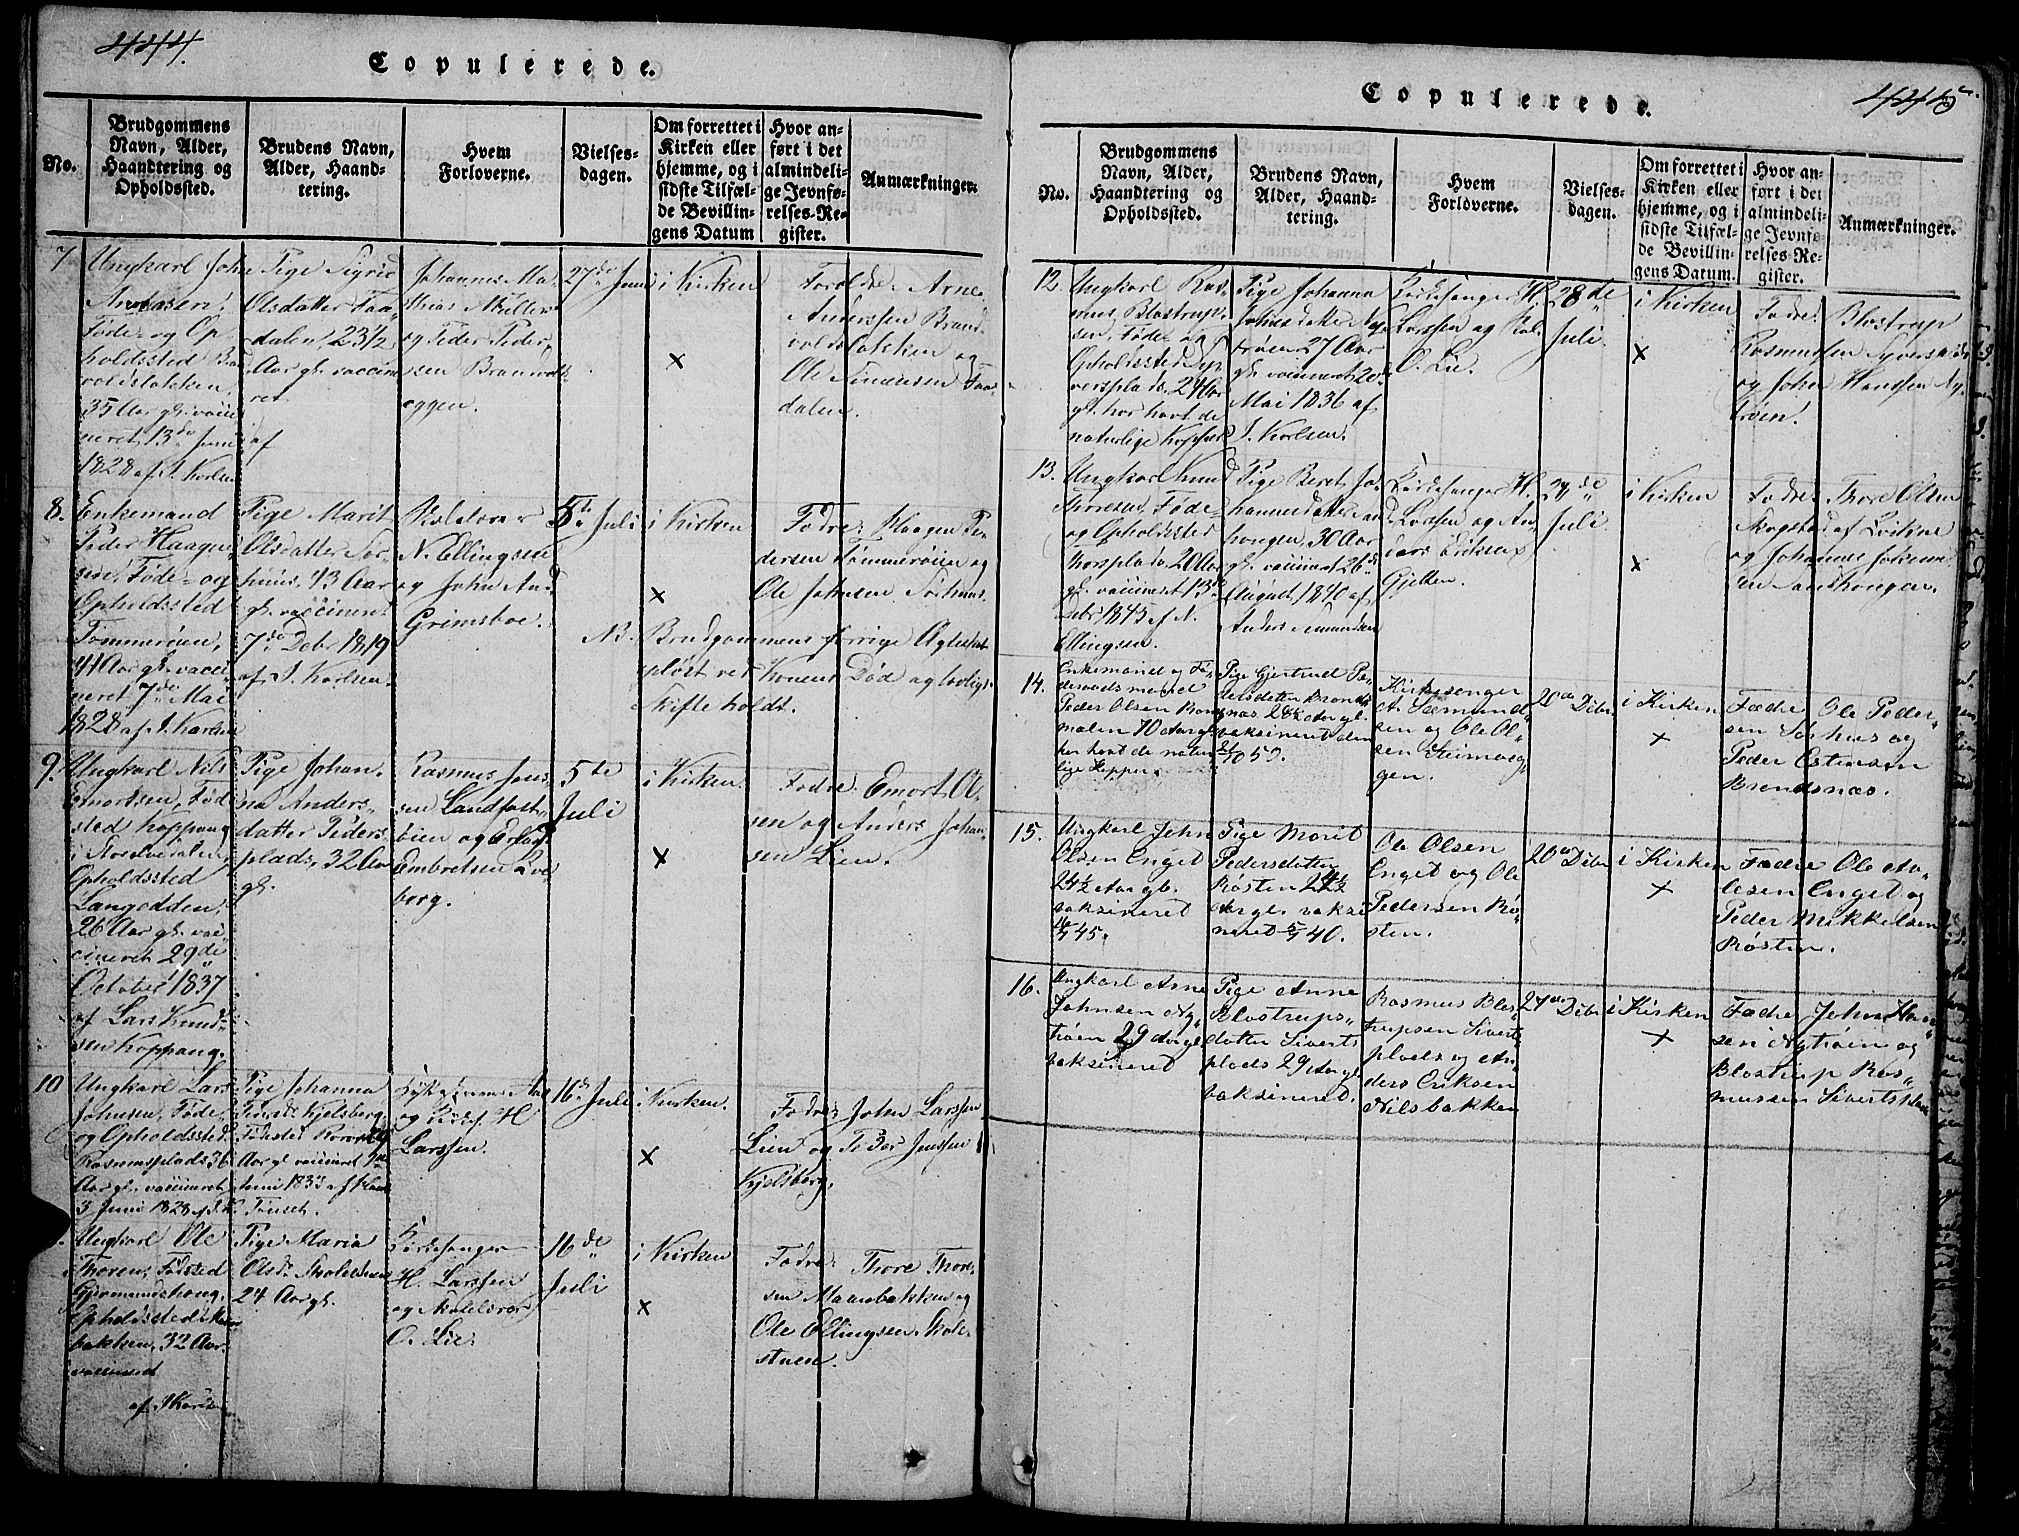 444.
Copulerede.
No.
Brudgommens
Navn, Alder,
Haandtering og
Opholdssted.
Brudens Navn,
Alder, Haand-
tering.
Hvem
Forloverne.
Vielses-
dagen.
Om forrettet i
Kirken eller
hjemme, og i
sidste Tilfæl-
de Bevillin-
gens Datum
Hvor an-
ført i det
almindeli-
ge Jevnfø-
relses-Re-
gister.
Anmærkninger.
7
Ungkarl John
Føde- og Op
holdssted
35 Aar gl. vacci
neret 13de Juni
1828 af J. Korlsen
Pige Sigrid
Olsdatter Faa-
dalen, 23½
Aar gl. vaccine
ret
af
Johannes Ma-
thias Müller
og Peder Peder-
sen
eggen.
27de Juni
i Kirken
x
Forældre: Arne
Anderssen Brand
voldsbakken og
Ole Simensen Faa-
dalen.
8.
Enkemand
Peder Haagen
sen, Føde- og
Opholdssted
Tømmerøien,
41 Aar gl. vacci
neret 7de Mai
1828 af J. Karlsen
Pige Marit
Olsdatter Sør-
huus, 43 Aar
gl. vaccineret
7de Debr 1819
af J. Korlsen.
Skolelærer
N. Ellingsen
og John
Grimsboe.
5te Juli
i Kirken
x
Fædre: Haagen Pe-
dersen Tømmerøien og
Ole Johnsen Sørhuus.
NB. Brudgommens forrige Ægteskab
opløst ved Konens Død og lovligt
Skifte holdt.
9.
Ungkarl Nils
Emortsen, Fød
sted Koppang
i Storelvedalen,
Opholdssted
Langodden,
26 Aar gl. vac-
cineret 29de
October 1837
af Lars Knud-
sen Koppang.
Pige Johan-
na Anders-
datter Peders-
plads, 32 Aar
gl.
Rasmus Jens-
sen Landfast-
øien og
Embretsen
borg.
5te
Juli
i Kirken.
x
Fædre: Emort O-
sen og Anders Johan-
sen Lien.
10
Ungkarl Lars
Johnsen, Føde
og Opholdssted
Rasmusplads 36
Aar gl. vaccineret
3 Juni 1828 af J. K.
Pige Johanna
Pedersd. Kjelsberg
Fødested Røros 29
Aar gl. vaccineret
Juni 1833 af
Tønset.
og Kirkes. H
Larssen.
16de Juli
i Kirken.
x
Fædre: John Larssen
Lien og Peder Jenssen
Kjelsberg.
Ungkarl Ole
Thoresen, Fødsted
Gjermundshaug,
Opholdssted
bakken, 32 Aar.
vaccineret
af J. Karlsen
Pige Maria
Olsdr Skolestuen
24 Aar gl.
Kirkesanger
H. Larssen
og Skolelærer
O. Lie.
16de
Juli
i Kirken
x
Fædre: Thore Thore-
sen Maanbakken og
Ole Ellingsen Skole-
stuen.
445.
Copulerede.
No.
Brudgommens
Navn, Alder,
Haandtering og
Opholdssted.
Brudens Navn,
Alder, Haand-
tering.
Hvem
Forloverne.
Vielses-
dagen.
Om forrettet i
Kirken eller
hjemme, og i
sidste Tilfæl-
de Bevillin-
gens Datum.
Hvor an-
ført i det
almindeli-
ge Jevnfø-
relses-Re-
gister.
Anmærkninger.
12.
Ungkarl Ras-
mus Blostrup-
sen, Føde- og
Opholdssted Sy-
versplads, 24 Aar
gl. har havt de
naturlige Kopper
Pige Johanna
Johnsdatter Ny-
trøen 27 Aar
gl. vaccineret 20de
Mai 1836 af
J. Korlsen.
Kirkesanger H.
Larssen og
O. Lie.
28de
Juli.
i Kirken
x
Fædre: Blostrup
Rasmussen
og John Hanssen Ny-
trøen.
13.
Ungkarl Knud
Thoresen, Føde-
og Opholdssted
Korsplads, 20 Aar
gl. vaccineret 13de
Debr 1845 af N.
Ellingsen.
Pige Beret Jo-
hannesdatter
hougen, 30 Aar
gl. vaccineret 26de
August 1840 af
Anders Amundsen
Kirkesanger H.
Larssen og An-
ders Eriksen
Gjelten.
i Kirken
x
Fædre: Thore Olsen
Skogstad af Kvikne
og Johannes
sen Sandhougen.
14.
Enkemand og Fø-
deraadsmand
Peder Olsen
moen 70 Aar gl
har havt de natur
lige Kopper.
Pige Gjertrud Pe-
dersdatter Brænd-
næs, 28½ Aar gl.
vaksineret den
Kirkesanger
A. Sæmund-
sen og Ole Ol-
sen
gen.
20de Debr
i Kirken
x
Fædre Ole Peder-
sen Sørhus og
Peder Estensen
Brendsnæs.
15.
Ungkarl John
Olsen Enget
24½ Aar gl.
vaksineret
Pige Marit
Pedersdatter
Røsten 24½
Aar gl. vaksi
neret
Ole Olsen
Enget og Ole
Pedersen Rø-
sten.
20de Debr
i Kirken
x
Fædre Ole
Olesen Enget og
Peder Mikkelsen
Røsten.
16.
Ungkarl Arne
Johnsen Ny-
trøen 29 Aar gl
vaksineret
Pige Anne
Blostrups-
datter Siverts
plads 29 Aar gl.
vaksineret.
Rasmus Blos-
trupsen Siverts
plads og An-
ders Eriksen
Nilsbakken
27de Debr
i Kirken
x
Fædre John Han-
sen Nytrøen og
Blostrup Ras-
mussen Sivertsplads